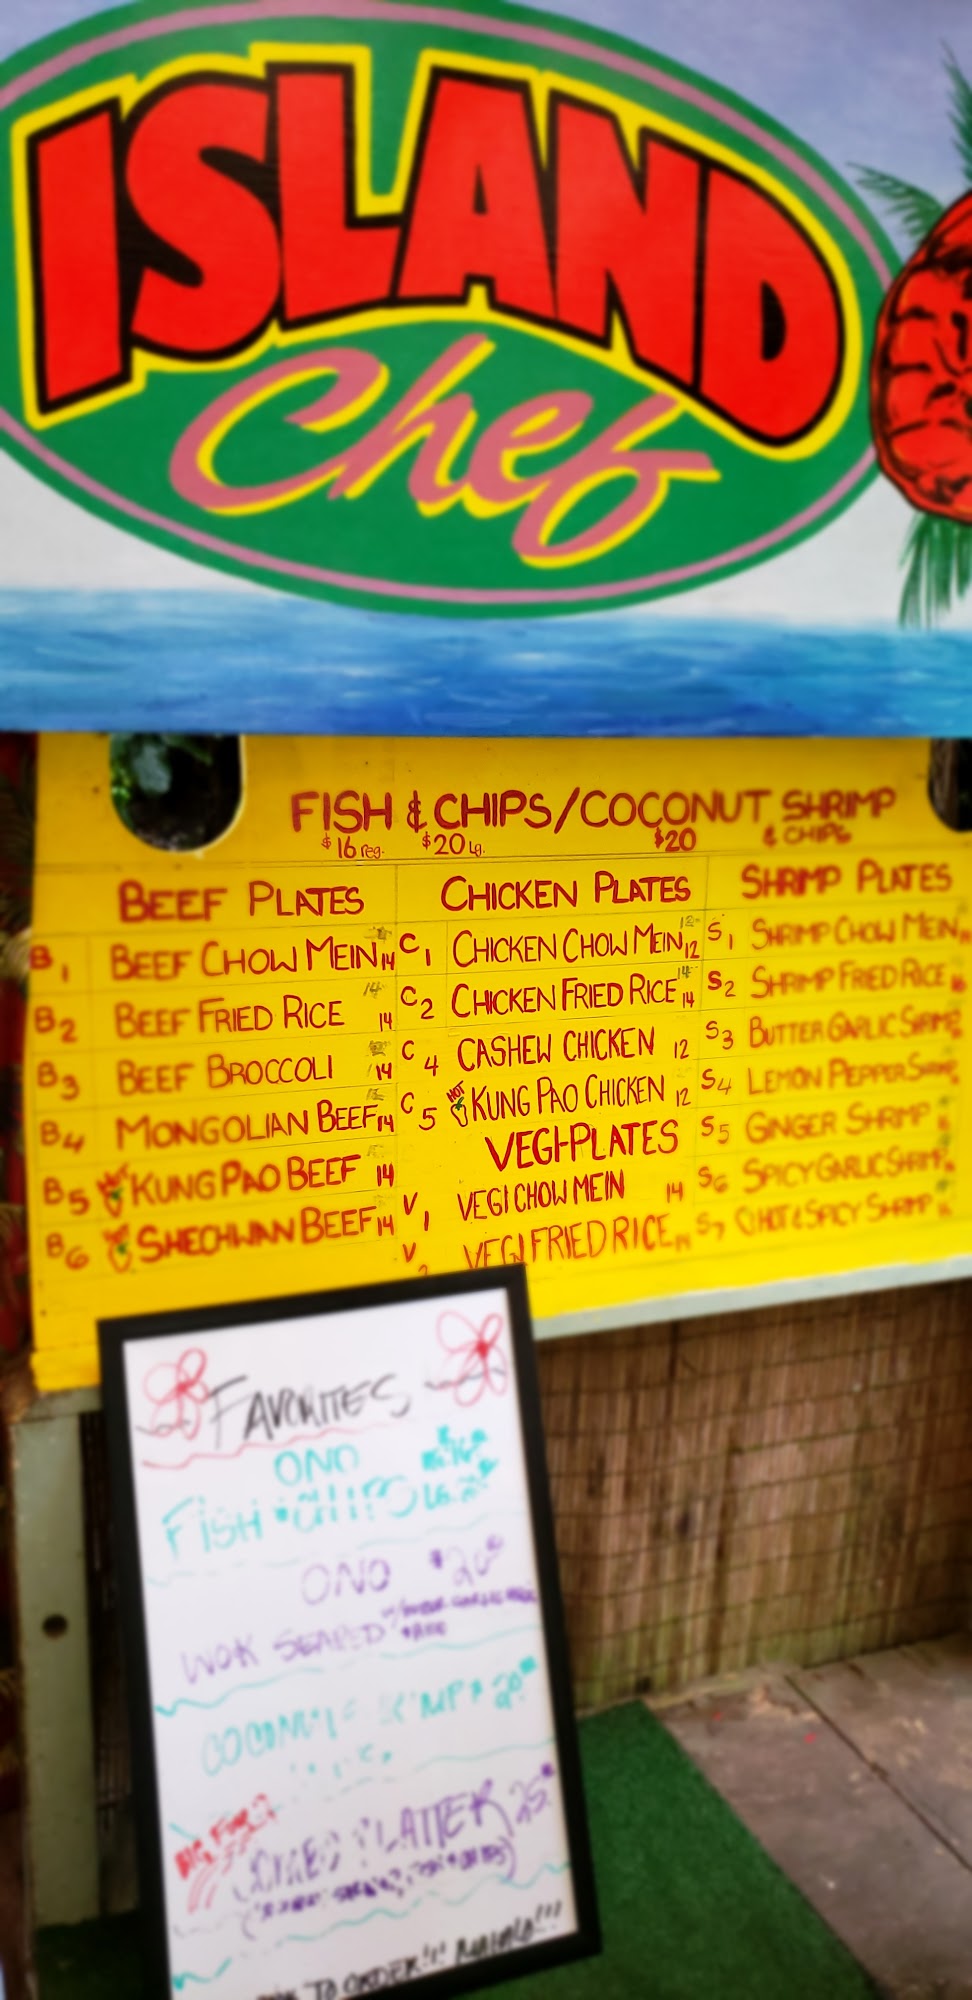 ISLAND
Chef
FISH & CHIPS/COCONUT SHRIMP
$16 reg. $20 Lg. $20 & CHIPS
BEEF PLATES
B1 BEEF CHOW MEIN 14
B2 BEEF FRIED RICE 14
B3 BEEF BROCCOLI 14
B4 MONGOLIAN BEEF 14
B5 KUNG PAO BEEF 14
B6 SHECHWAN BEEF 14
CHICKEN PLATES
C1 CHICKEN CHOW MEIN 12
C2 CHICKEN FRIED RICE 14
C4 CASHEW CHICKEN 12
C5 HOT KUNG PAO CHICKEN 12
VEGI-PLATES
V1 VEGI CHOW MEIN 14
V2 VEGI FRIED RICE
SHRIMP PLATES
S1 SHRIMP CHOW MEIN
S2 SHRIMP FRIED RICE
S3 BUTTER GARLIC SHRIMP
S4 LEMON PEPPER SHRIMP
S5 GINGER SHRIMP
S6 SPICY GARLIC SHRIMP
S7 HOT & SPICY SHRIMP
FAVORITES
ONO
FISH & CHIPS
ONO $20
WOK SEARED
COCONUT
PLATTER 25
TO ORDER!! MAHALO!!!